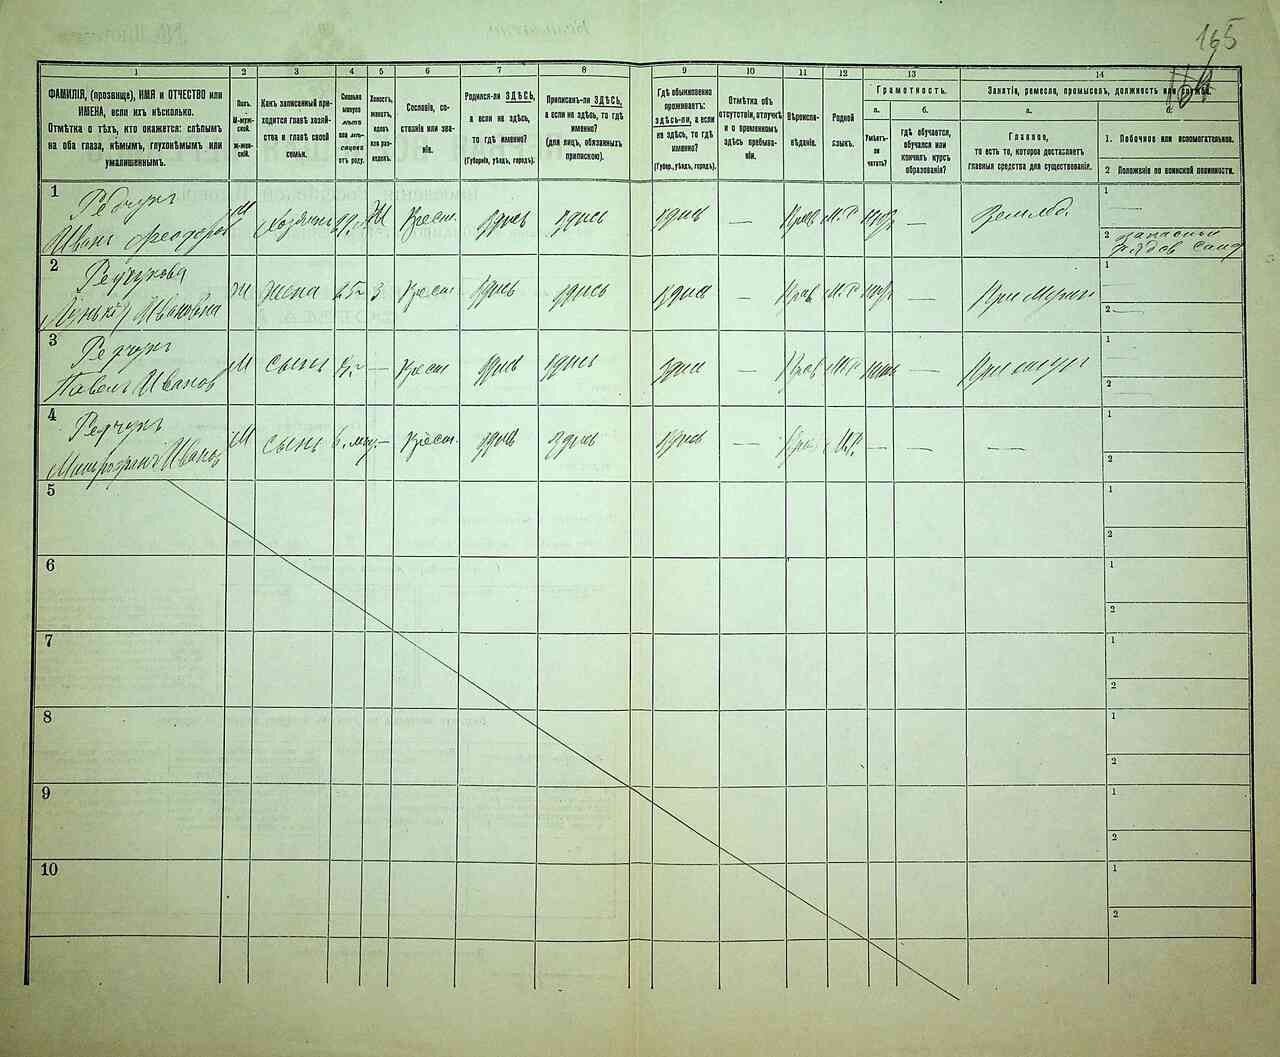 165
1
2
3
4
5
6
7
8
9
10
11
12
13
14
ФАМИЛІЯ, (прозвище), ИМЯ и ОТЧЕСТВО или
ИМЕНА, если ихъ нѣсколько.
Отмѣтка о тѣхъ, кто окажется: слѣпымъ
на оба глаза, нѣмымъ, глухонѣмымъ или
умалишеннымъ.
Полъ.
М-муж-
ской.
Ж-жен-
скій.
Какъ записанный при-
ходится главѣ хозяй-
ства и главѣ своей
семьи.
Сколько
минуло
лѣтъ
или мѣ-
сяцевъ
отъ роду.
Холостъ,
женатъ,
вдовъ
или раз-
веденъ.
Сословіе, со-
стояніе или зва-
ніе.
Родился-ли ЗДѢСЬ,
а если не здѣсь,
то гдѣ именно?
(Губернія, уѣздъ, городъ).
Приписанъ-ли ЗДѢСЬ,
а если не здѣсь, то гдѣ
именно?
(для лицъ, обязанныхъ
припискою).
Гдѣ обыкновенно
проживаетъ:
здѣсь-ли, а если
не здѣсь, то гдѣ
именно?
(Губер., уѣздъ, городъ).
Отмѣтка объ
отсутствіи, отлучкѣ
и о временномъ
здѣсь пребыва-
ніи.
Вѣроиспо-
вѣданіе.
Родной
языкъ.
Грамотность.
а.
Умѣетъ-
ли
читать?
б.
гдѣ обучается,
обучался или
кончилъ курсъ
образованія?
Занятіе, ремесло, промыселъ, должность или служба.
а.
Главное,
то есть то, которое доставляетъ
главныя средства для существованія.
1. Побочное или вспомогательное.
2 Положеніе по воинской повинности.
1
Редчукъ
Иванъ Феодоров
М
Хозяинъ
Крест.
здись
здись
здись
—
Прав
М.Р
—
Землед.
1
2 запасный
2
Редчукова
Ивановна
Ж
жена
25
З
Крест
здись
здись
здись
—
Прав
М.Р
—
1
2
3
Редчукъ
Павелъ Иванов
М
сынъ
—
Крест
здись
здись
здис
—
Прав
М.Р
—
1
2
4
Редчукъ
Митрофанъ Иванов
М
сынъ
6. мц.
—
Крест.
здись
здись
здись
—
Пра
М.Р.
—
—
—
1
2
5
1
2
6
1
2
7
1
2
8
1
2
9
1
2
10
1
2